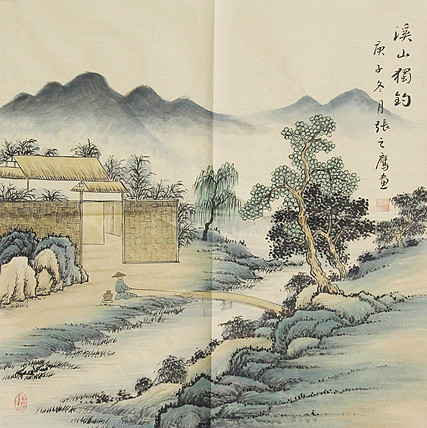 溪山獨釣
庚子冬月張之鹰画